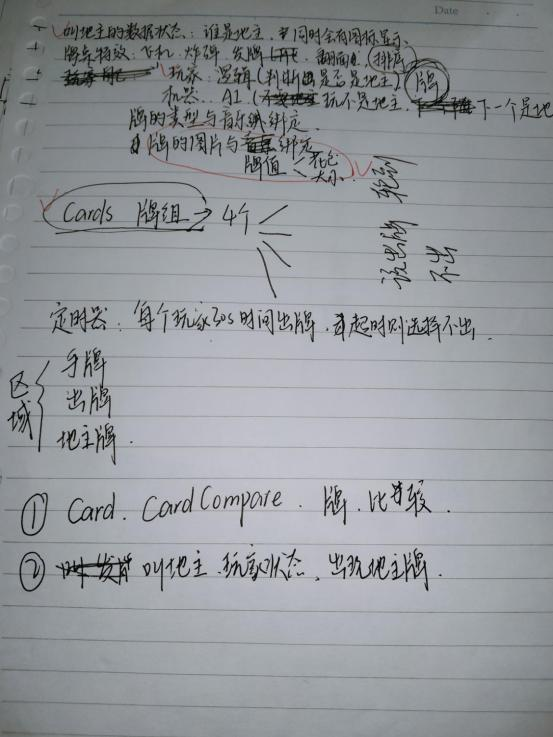 Date
叫地主的数据状态:谁是地主,同时会有图标显示.
牌桌特效:飞机,炸弹,发牌,翻面,(排序
玩家:逻辑(判断出是否是地主)牌
机器... AI.(玩不是地主,下一个是地
牌的类型与音乐绑定.
牌的图片与绑定
牌值 花色
大小.
轮到
说出牌
不出
Cards 牌组 → 4个
定时器:每个玩家30s时间出牌,起时则选择不出.
区域
手牌
出牌
地主牌.
① Card. CardCompare. 牌.比较.
② 叫地主.玩家状态.出玩地主牌.